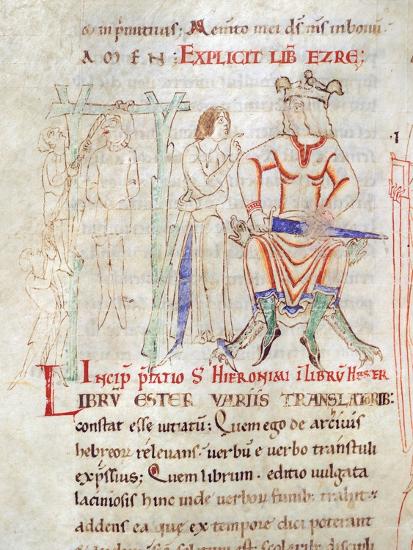 & in primitiuis; Memto mei ds ms in bonū
A M E N : EXPLICIT LIB EZRE;
INCIP PFATIO S HIERONIMI I LIBRŪ HESTER
LIBRV ESTER VARIIS TRANSLATORIB:
constat esse uitiatū; Quem ego de archiuis
hebreorū releuans. uerbū e uerbo transtuli
exp̄ssius; Quem librum. editio uulgata
laciniosis hinc inde uerborū funib; trahit.
addens ea que ex tempore dici poterant